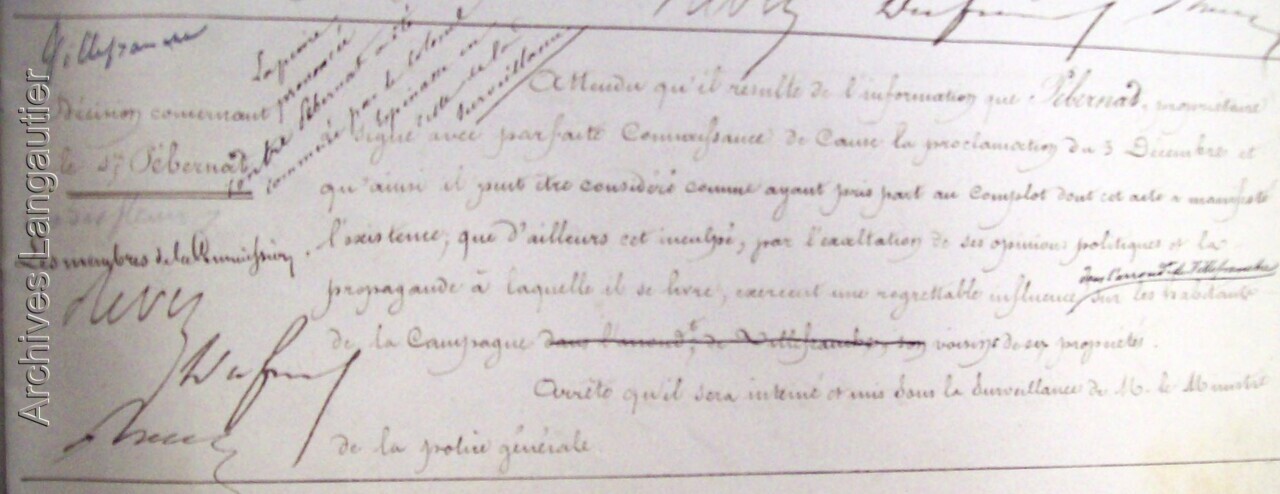 Villefranche
La peine
prononcée
contre Pébernad a été
commuée par le colonel
Espinasse en
celle de la
surveillance
Décision concernant
le Sr Pébernad
Les membres de la Commission
Attendu qu'il résulte de l'information que Pébernad, propriétaire
signé avec parfaite Connaissance de Cause la proclamation du 3 Décembre et
qu'ainsi il peut être considéré comme ayant pris part au Complot dont cet acte a manifesté
l'existence; que d'ailleurs cet inculpé, par l'exaltation de ses opinions politiques et la
dans l'arrondt de Villefranche
propagande à laquelle il se livre, exercent une regrettable influence sur les habitants
de la Campagne dans l'arrondt de Villefranche, son voisins de ses propriétés.
Arrête qu'il sera interné et mis sous la Surveillance de M. le Ministre
de la police générale.
Archives Langautier